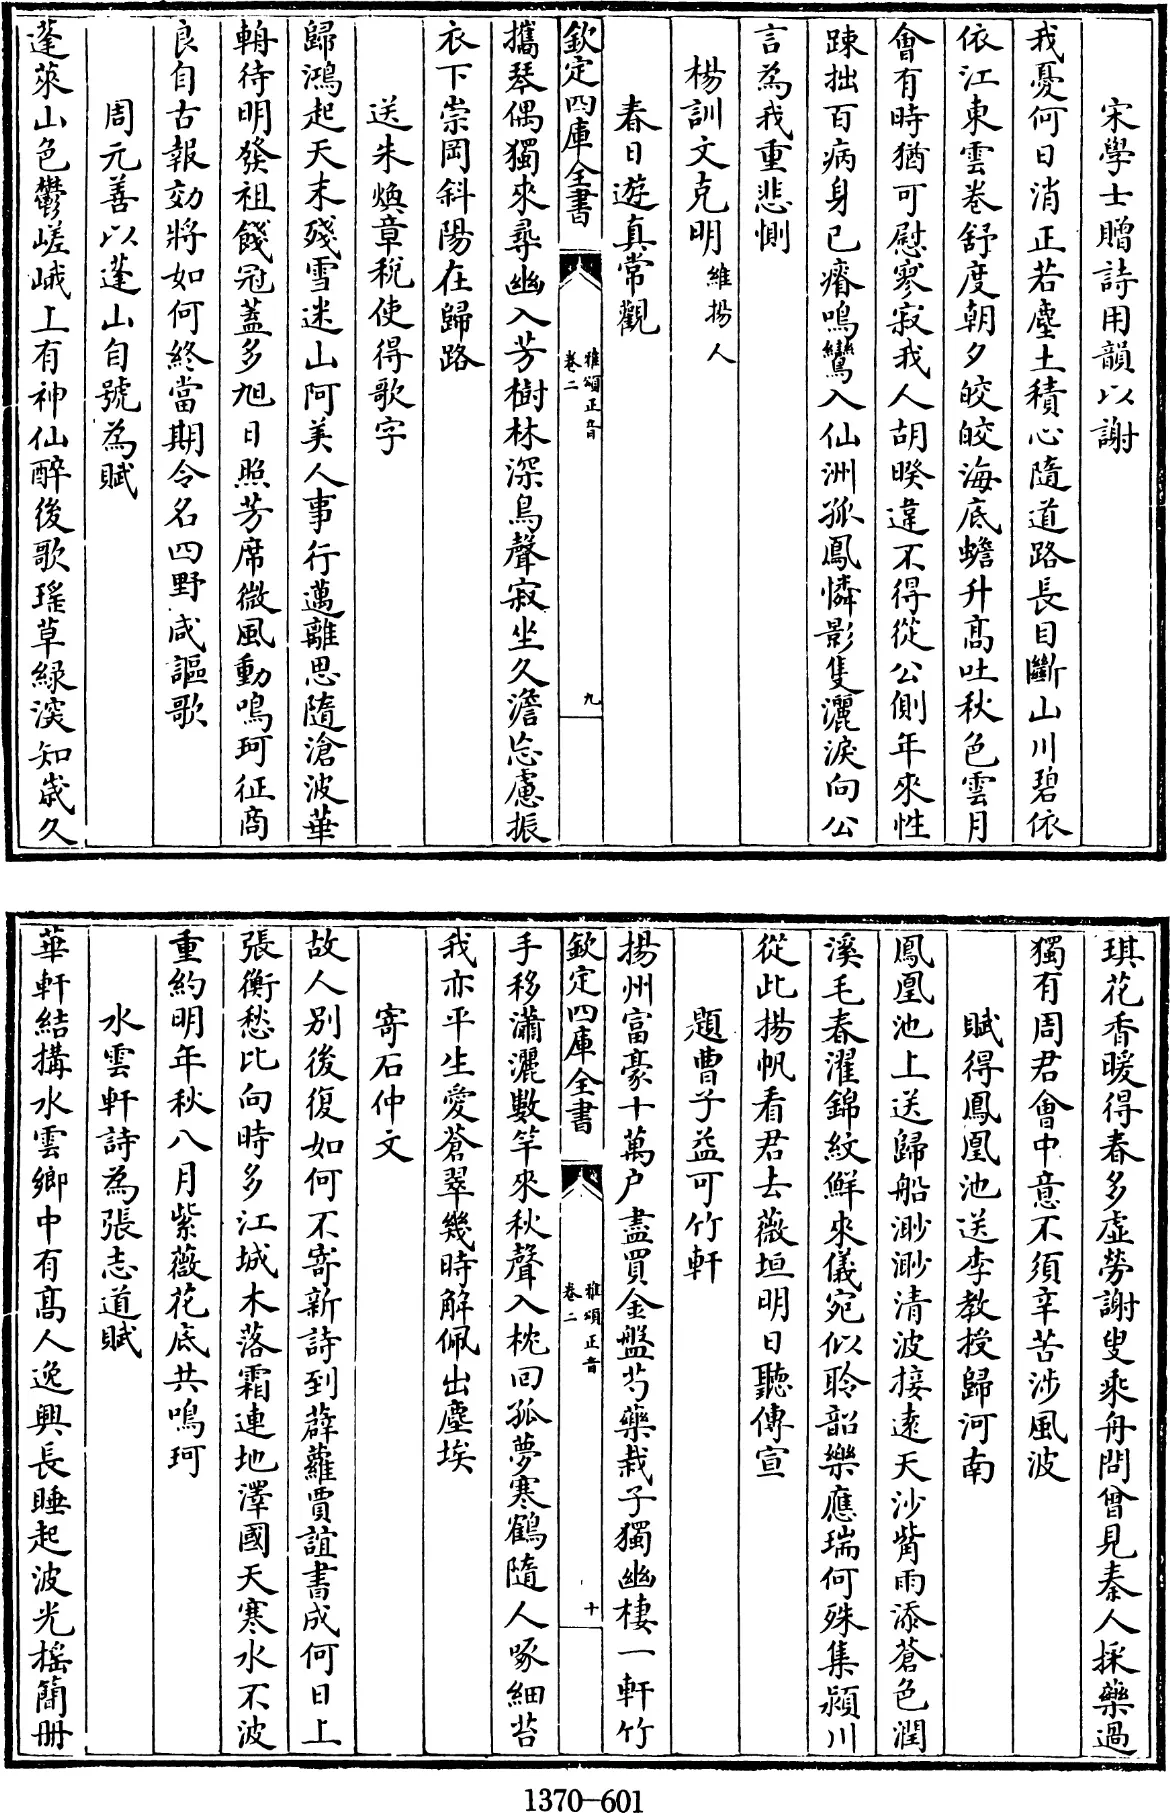 宋學士贈詩用韻以謝
我憂何日消正若塵土積心隨道路長目斷山川碧依
依江東雲卷舒度朝夕皎皎海底蟾升高吐秋色雲月
會有時猶可慰寥寂我人胡暌違不得從公側年來性
踈拙百病身已瘠鳴鸞入仙洲孤鳳憐影隻灑淚向公
言為我重悲惻
楊訓文克明維揚人
春日遊真常觀
欽定四庫全書
雅頌正音
卷二
九
攜琴偶獨來尋幽入芳樹林深鳥聲寂坐久澹忘慮振
衣下崇岡斜陽在歸路
送朱煥章稅使得歌字
歸鴻起天末殘雪迷山阿美人事行邁離思隨滄波華
輈待明發祖餞冠蓋多旭日照芳席微風動鳴珂征商
良自古報効將如何終當期令名四野咸謳歌
周元善以蓬山自號為賦
蓬萊山色鬱嵯峨上有神仙醉後歌瑤草緑深知歲久
琪花香暖得春多虛勞謝叟乘舟問曾見秦人採藥過
獨有周君會中意不須辛苦涉風波
賦得鳳凰池送李教授歸河南
鳳凰池上送歸船渺渺清波接逺天沙觜雨添蒼色潤
溪毛春濯錦紋鮮來儀宛似聆韶樂應瑞何殊集潁川
從此揚帆看君去薇垣明日聽傳宣
題曹子益可竹軒
揚州富豪十萬户盡買金盤芍藥栽子獨幽棲一軒竹
欽定四庫全書
雅頌正音
卷二
十
手移瀟灑數竿來秋聲入枕回孤夢寒鶴隨人啄細苔
我亦平生愛蒼翠幾時解佩出塵埃
寄石仲文
故人别後復如何不寄新詩到薜蘿賈誼書成何日上
張衡愁比向時多江城木落霜連地澤國天寒水不波
重約明年秋八月紫薇花底共鳴珂
水雲軒詩為張志道賦
華軒結搆水雲鄉中有高人逸興長睡起波光搖簡冊
1370—601